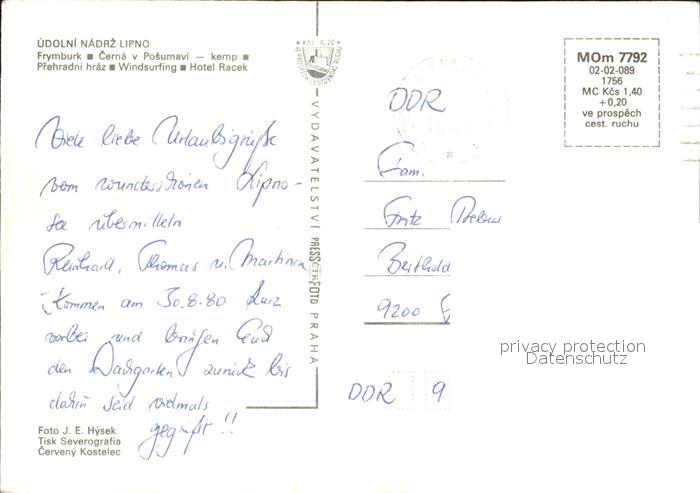 ÚDOLNÍ NÁDRŽ LIPNO
Frymburk ■ Černá v Pošumaví — kemp ■
Přehradní hráz ■ Windsurfing ■ Hotel Racek
Viele liebe Urlaubsgrüße
vom wunderschönen Lipno-
See übermitteln
Reinhard, Thomas u. Martina
Kommen am 30.8.80 kurz
vorbei und bringen Euch
den zurück bis
dahin seid vielmals
gegrüßt !!
Foto J. E. Hýsek
Tisk Severografia
Červený Kostelec
Kčs 0,20
VE PROSPĚCH CESTOVNÍHO RUCHU
VYDAVATELSTVÍ PRESSFOTO PRAHA
MOm 7792
02-02-089
1756
MC Kčs 1,40
+0,20
ve prospěch
cest. ruchu
DDR
Fam.
Fritz
Berthold
9200
DDR 9
privacy protection
Datenschutz